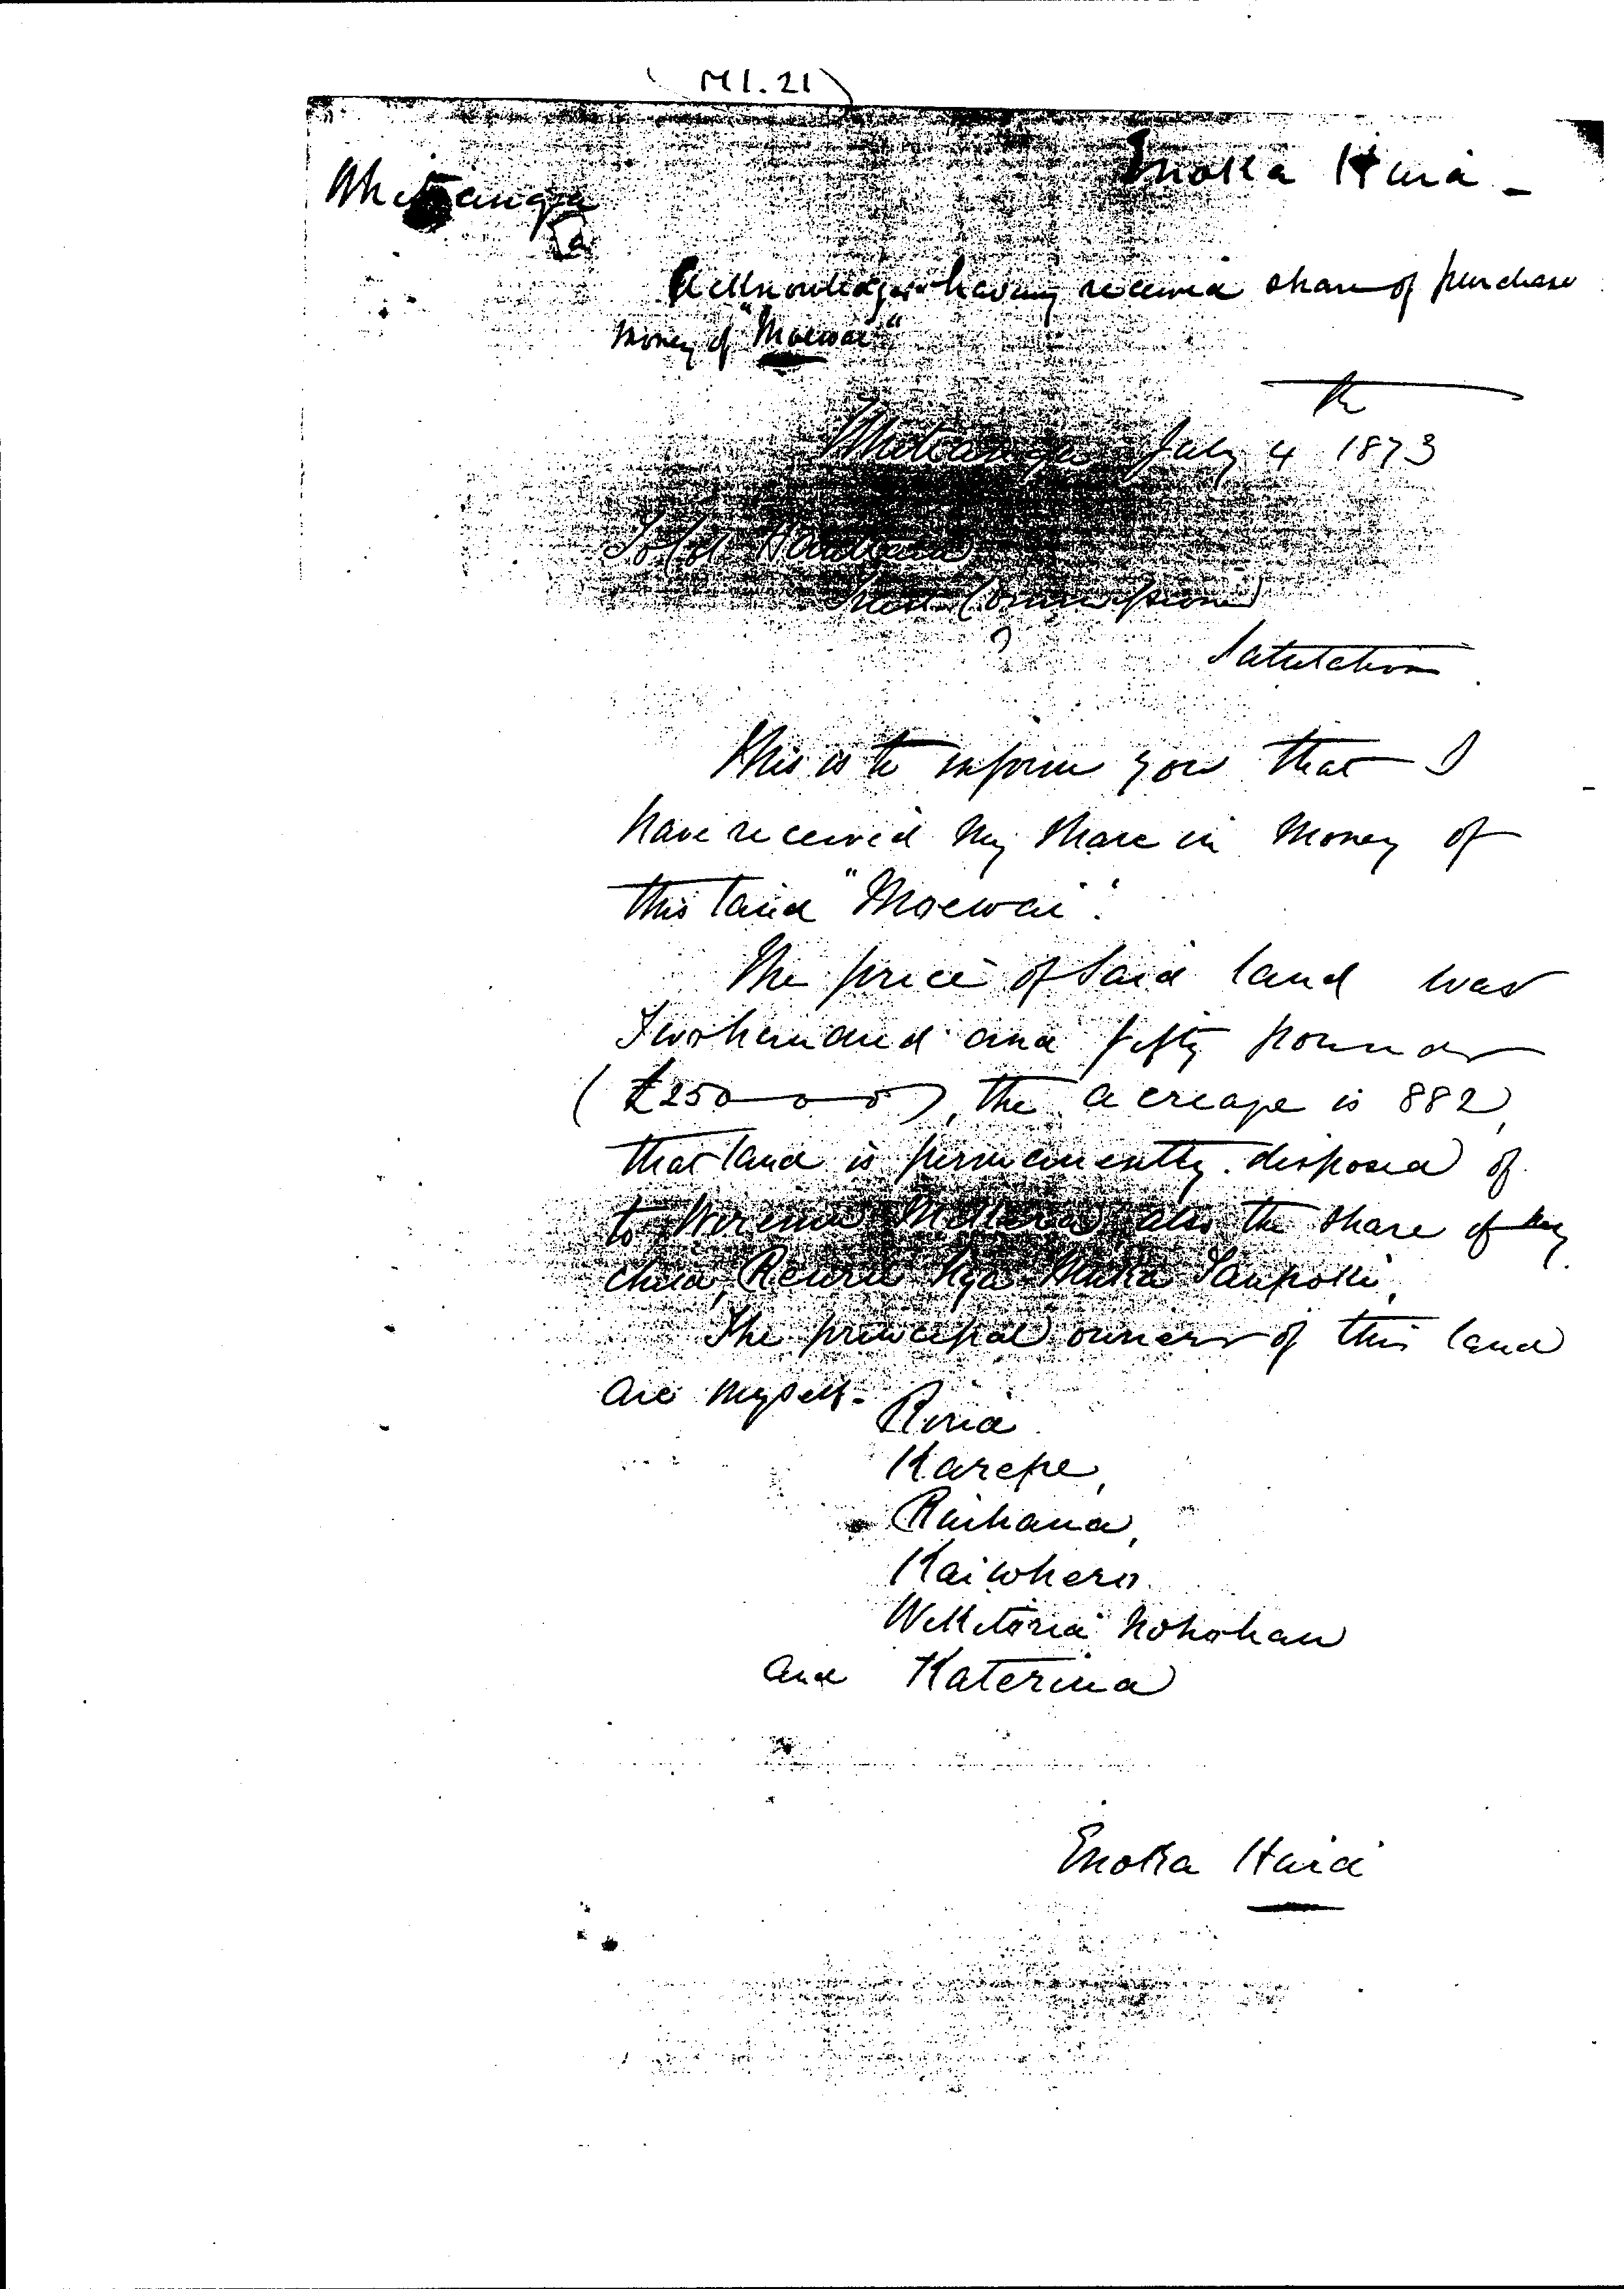 (M1.21)
Enoka Huia -
Whitianga
Acknowledges having received share of purchase
money of "Moewai"
Whitianga July 4 1873
Trust Commissioner
Salutation
This is to inform you that I
have received my share in money of
this land "Moewai".
The price of said land was
Two hundred and fifty pounds
(£250 - 0 - 0), the acreage is 882,
that land is permanently disposed of
to Wiremu also the share of my
child,
The principal owners of this land
are myself -
Riria
Karepe,
Raihana,
Kaiwhero
Wikitoria
and Katerina
Enoka Huia